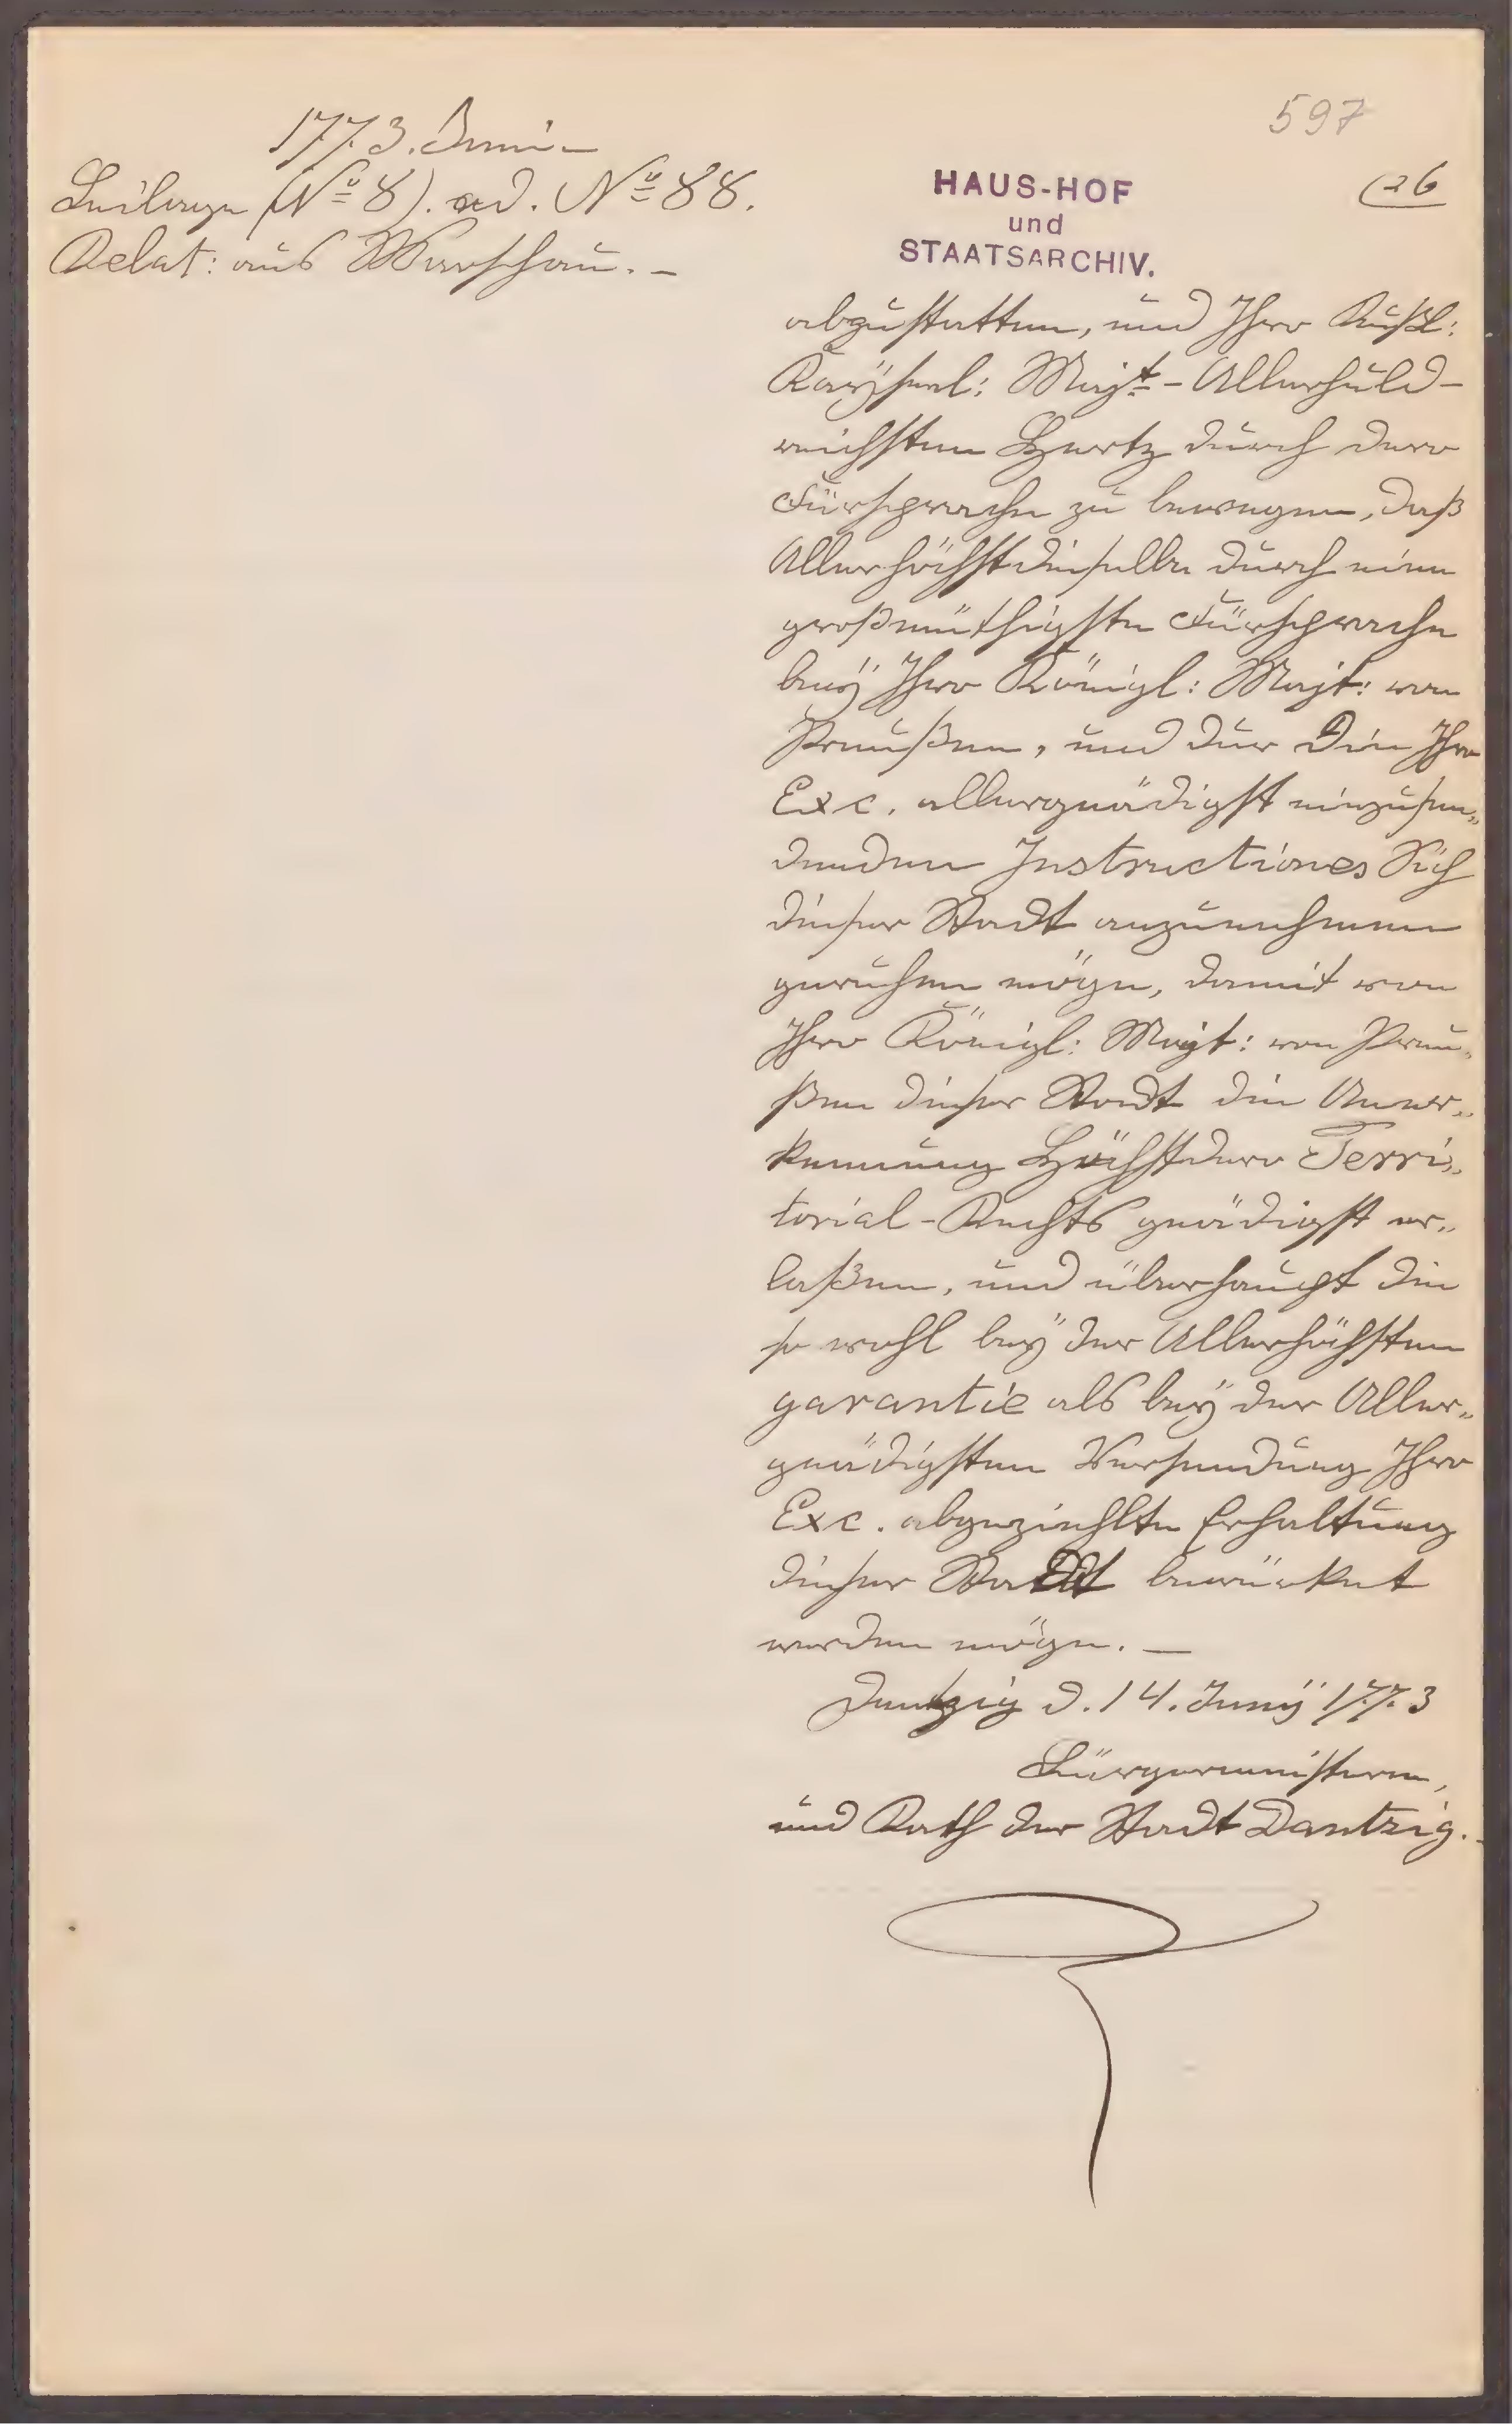 597
26
1773. Juni.
Beilage (No 8). ad. No 88.
Relat: aus Warschau. –
HAUS-HOF
und
STAATSARCHIV.
abzustatten, und Ihro Rußl:
Kaÿserl: Majt – Allerhuld-
reichsten Hertz durch dero
Fürsprache zu bewegen, daß
Allerhöchstdieselbe durch eine
großmüthigste Fürsprache
beÿ Ihro Königl: Majt: von
Preußen, und der Die Ihro
Exc. allergnädigst einzusen„
denden Instructiones Sich
dieser Stadt anzunehmen
geruhen möge, damit von
Ihro Königl: Majt: von Preu„
ßen dieser Stadt die Aner„
kennung Höchstdero Terri„
torial-Rechts gnädigst er„
laßen, und überhaupt die
so wohl beÿ der Allerhöchsten
garantie als beÿ der Aller„
gnädigsten Versendung Ihro
Exc. abgeziehlte Erhaltung
dieser Stadt bewürket
werden möge. —
Dantzig d. 14. Junÿ 1773
Bürgermeistern,
und Rath der Stadt Dantzig.